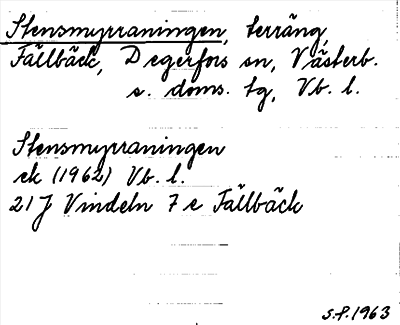 Stensmyrraningen, terräng,
Fällbäck, Degerfors sn, Västerb.
s. doms. tg, Vb. l.
Stensmyrraningen
ek (1962) Vb. l.
21 J Vindeln 7 e Fällbäck
S.P. 1963